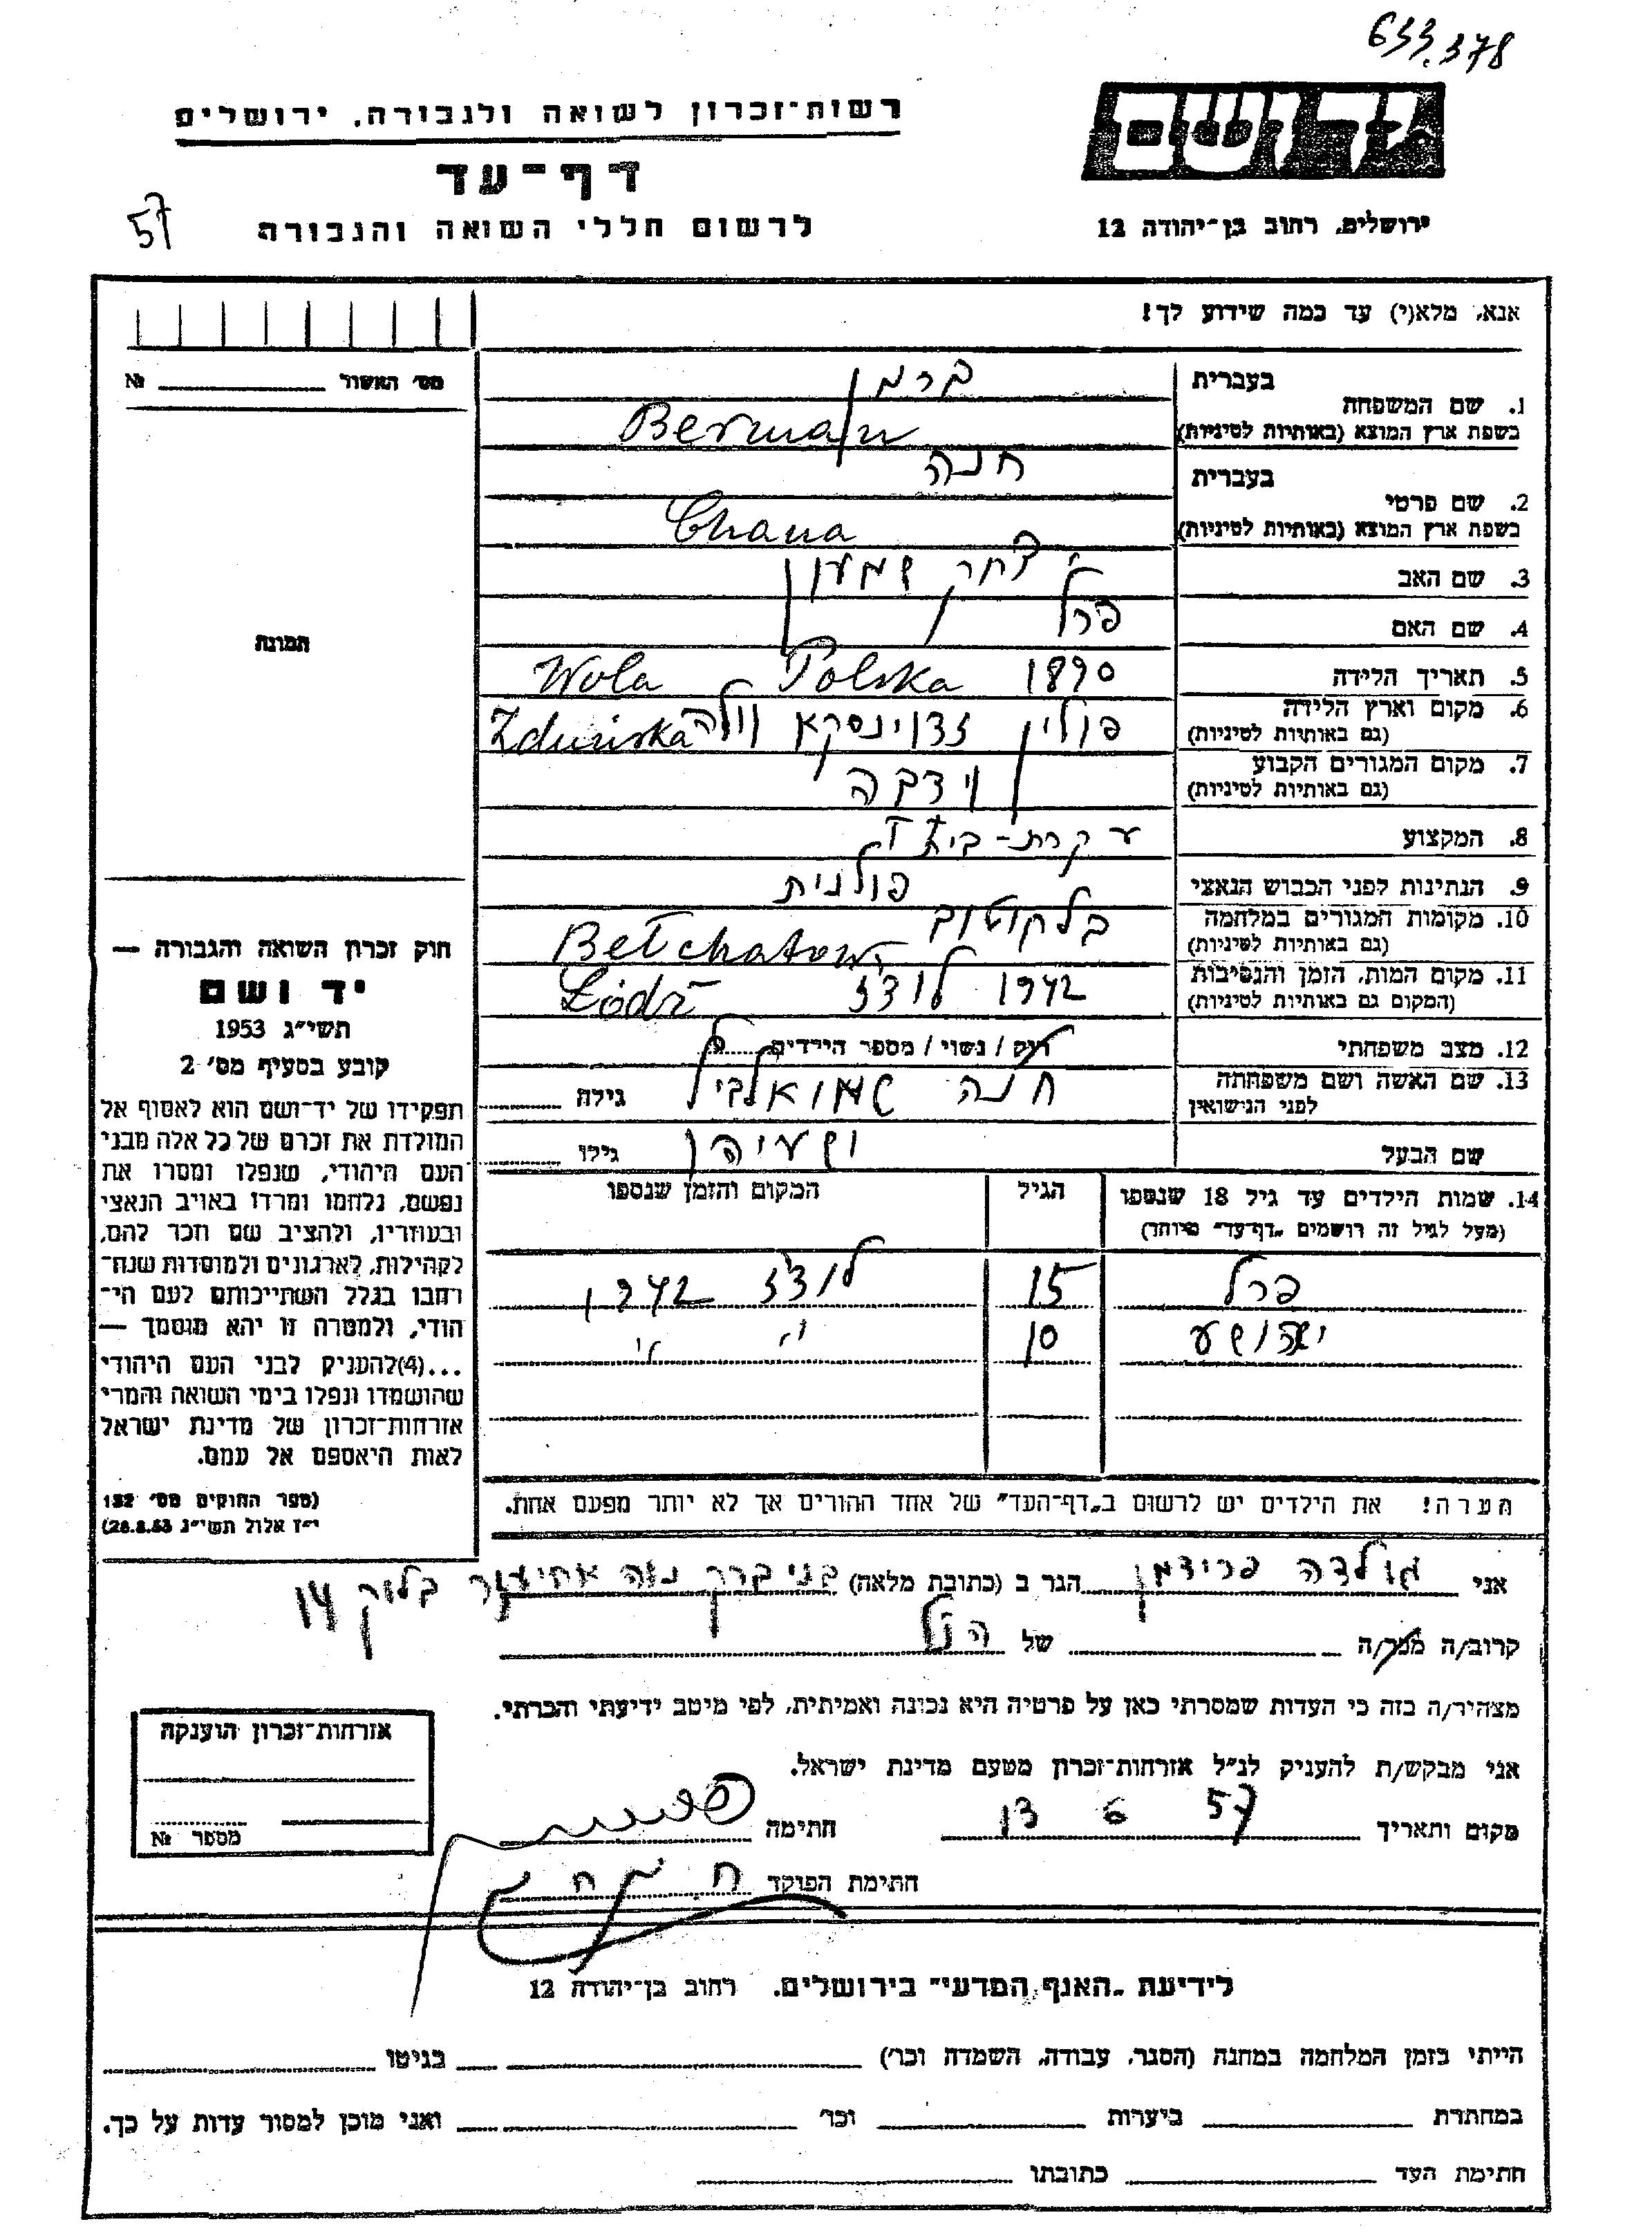 633.378
ידושם
רשות־זכרון לשואה ולגבורה, ירושלים
דף־עד
לרשום חללי השואה והגבורה
57
ירושלים, רחוב בן־יהודה 12
אנא, מלא(י) עד כמה שידוע לך!
מס׳ האשור № 
תמונה
1. שם המשפחה בעברית ברמן
בשפת ארץ המוצא (באותיות לטיניות) Berman
2. שם פרטי בעברית חנה
בשפת ארץ המוצא (באותיות לטיניות) Chana
3. שם האב יצחק שמעון
4. שם האם פרל
5. תאריך הלידה 1890 Polska Wola
6. מקום וארץ הלידה (גם באותיות לטיניות) פולין זדוינסקא וולה Zduńska
7. מקום המגורים הקבוע (גם באותיות לטיניות)
8. המקצוע עקרת-בית
9. הנתינות לפני הכבוש הנאצי פולנית
10. מקומות המגורים במלחמה (גם באותיות לטיניות) בלקטוב Bełchatow
11. מקום המות, הזמן והנסיבות (המקום גם באותיות לטיניות) 1942 לודז Łódź
12. מצב משפחתי רווק / נשוי / מספר הילדים
13. שם האשה ושם משפחתה לפני הנישואין חנה שמואלביץ גילה
שם הבעל ישעיהו גילו
14. שמות הילדים עד גיל 18 שנספו (מעל לגיל זה רושמים „דף־עד״ מיוחד) הגיל המקום והזמן שנספו
פרל 15 לודז 1942
יהושע 10 " "
הערה! את הילדים יש לרשום ב„דף־העד״ של אחד ההורים אך לא יותר מפעם אחת.
חוק זכרון השואה והגבורה —
יד ושם
תשי״ג 1953
קובע בסעיף מס׳ 2
תפקידו של יד־ושם הוא לאסוף אל
המולדת את זכרם של כל אלה מבני
העם היהודי, שנפלו ומסרו את
נפשם, נלחמו ומרדו באויב הנאצי
ובעוזריו, ולהציב שם וזכר להם,
לקהילות, לארגונים ולמוסדות שנח־
רבו בגלל השתייכותם לעם הי־
הודי, ולמטרה זו יהא מוסמך —
...(4)להעניק לבני העם היהודי
שהושמדו ונפלו בימי השואה והמרי
אזרחות־זכרון של מדינת ישראל
לאות היאספם אל עמם.
(ספר החוקים מס׳ 132
י״ז אלול תשי״ג 28.8.53)
אני גולדה פרידמן הגר ב (כתובת מלאה) בני ברק נוה אחיעזר בלוק 14
קרוב/ה מכר/ה של הנ״ל
מצהיר/ה בזה כי העדות שמסרתי כאן על פרטיה היא נכונה ואמיתית, לפי מיטב ידיעתי והכרתי.
אני מבקש/ת להעניק לנ״ל אזרחות־זכרון מטעם מדינת ישראל.
מקום ותאריך 13 6 57 חתימה
חתימת הפוקד
אזרחות־זכרון הוענקה
מספר №
לידיעת „האגף המדעי״ בירושלים, רחוב בן־יהודה 12
הייתי בזמן המלחמה במחנה (הסגר, עבודה, השמדה וכו׳) בגיטו
במחתרת ביערות וכו׳ ואני מוכן למסור עדות על כך.
חתימת העד כתובתו